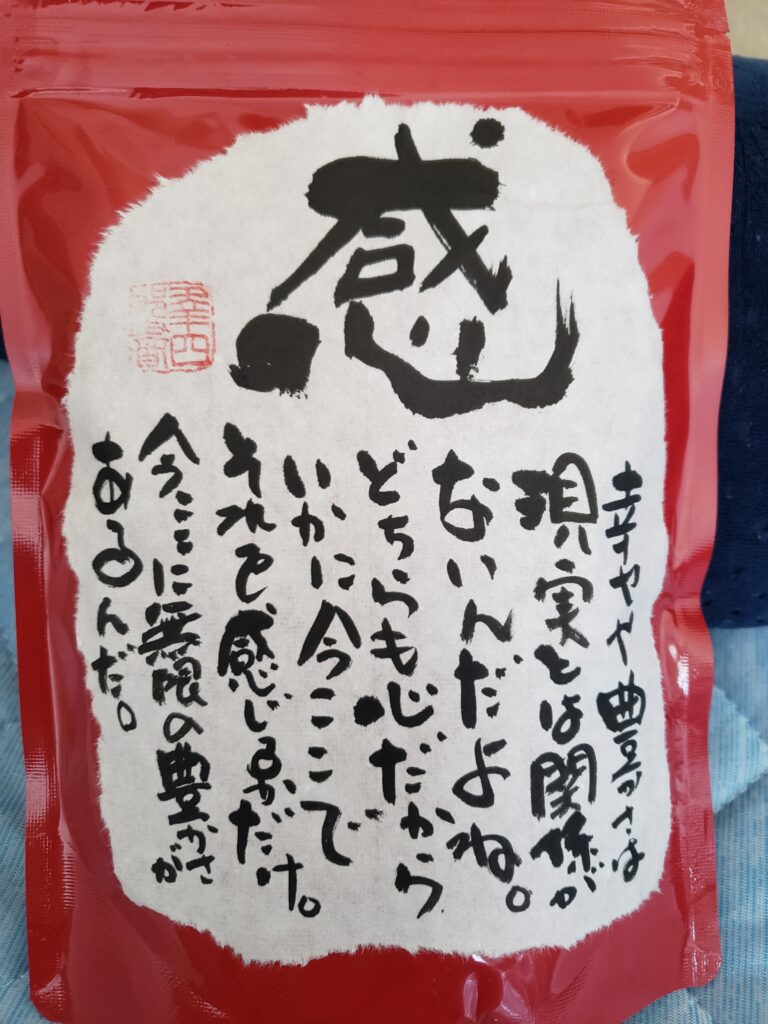 感
幸せや豊かさは
現実とは関係が
ないんだよね。
どちらも心だから
いかに今ここで
それを感じるかだけ。
今ここに無限の豊かさが
あるんだ。